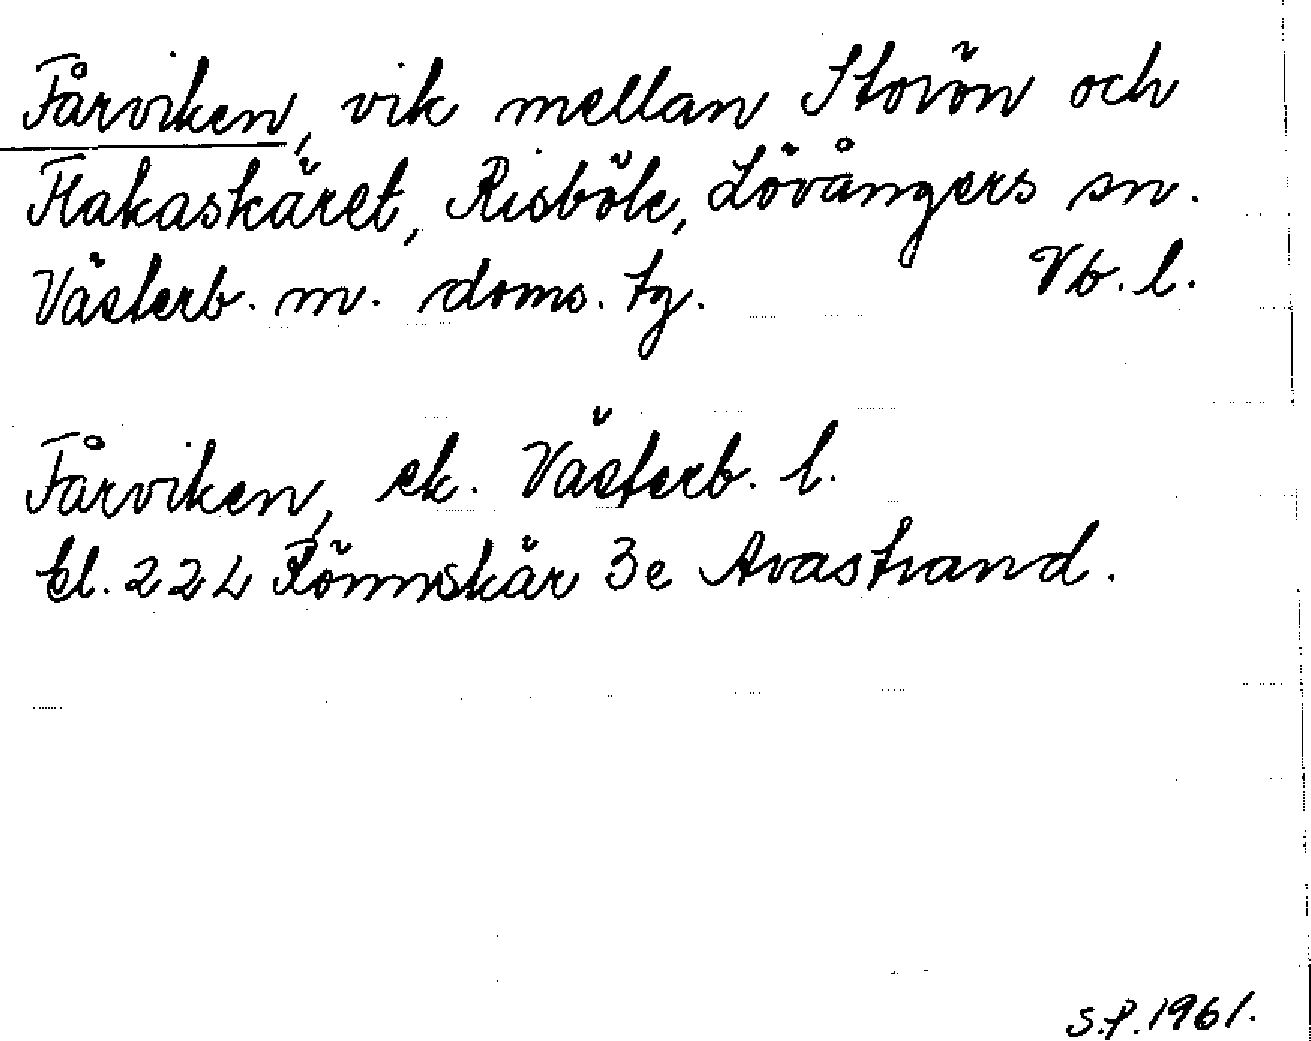 Fårviken, vik mellan Storön och
Flakaskäret, Risböle, Lövångers sn.
Västerb. m. doms. tg. Vb. l.
Fårviken, ek. Västerb. l.
bl. 22L Rönnskär 3e Avastrand.
S.P. 1961.